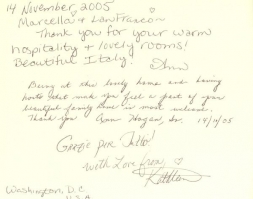 14 November, 2005
Marcella + Lanfranco
Thank you for your warm
hospitality + lovely rooms!
Beautiful Italy!
Being at this lovely home and having
hosts that made you feel a part of your
beautiful family time is most
Thank you 14/11/05
Grazie per Tutto!
with Love from,
Kathleen
Washington, D.C.
U.S.A